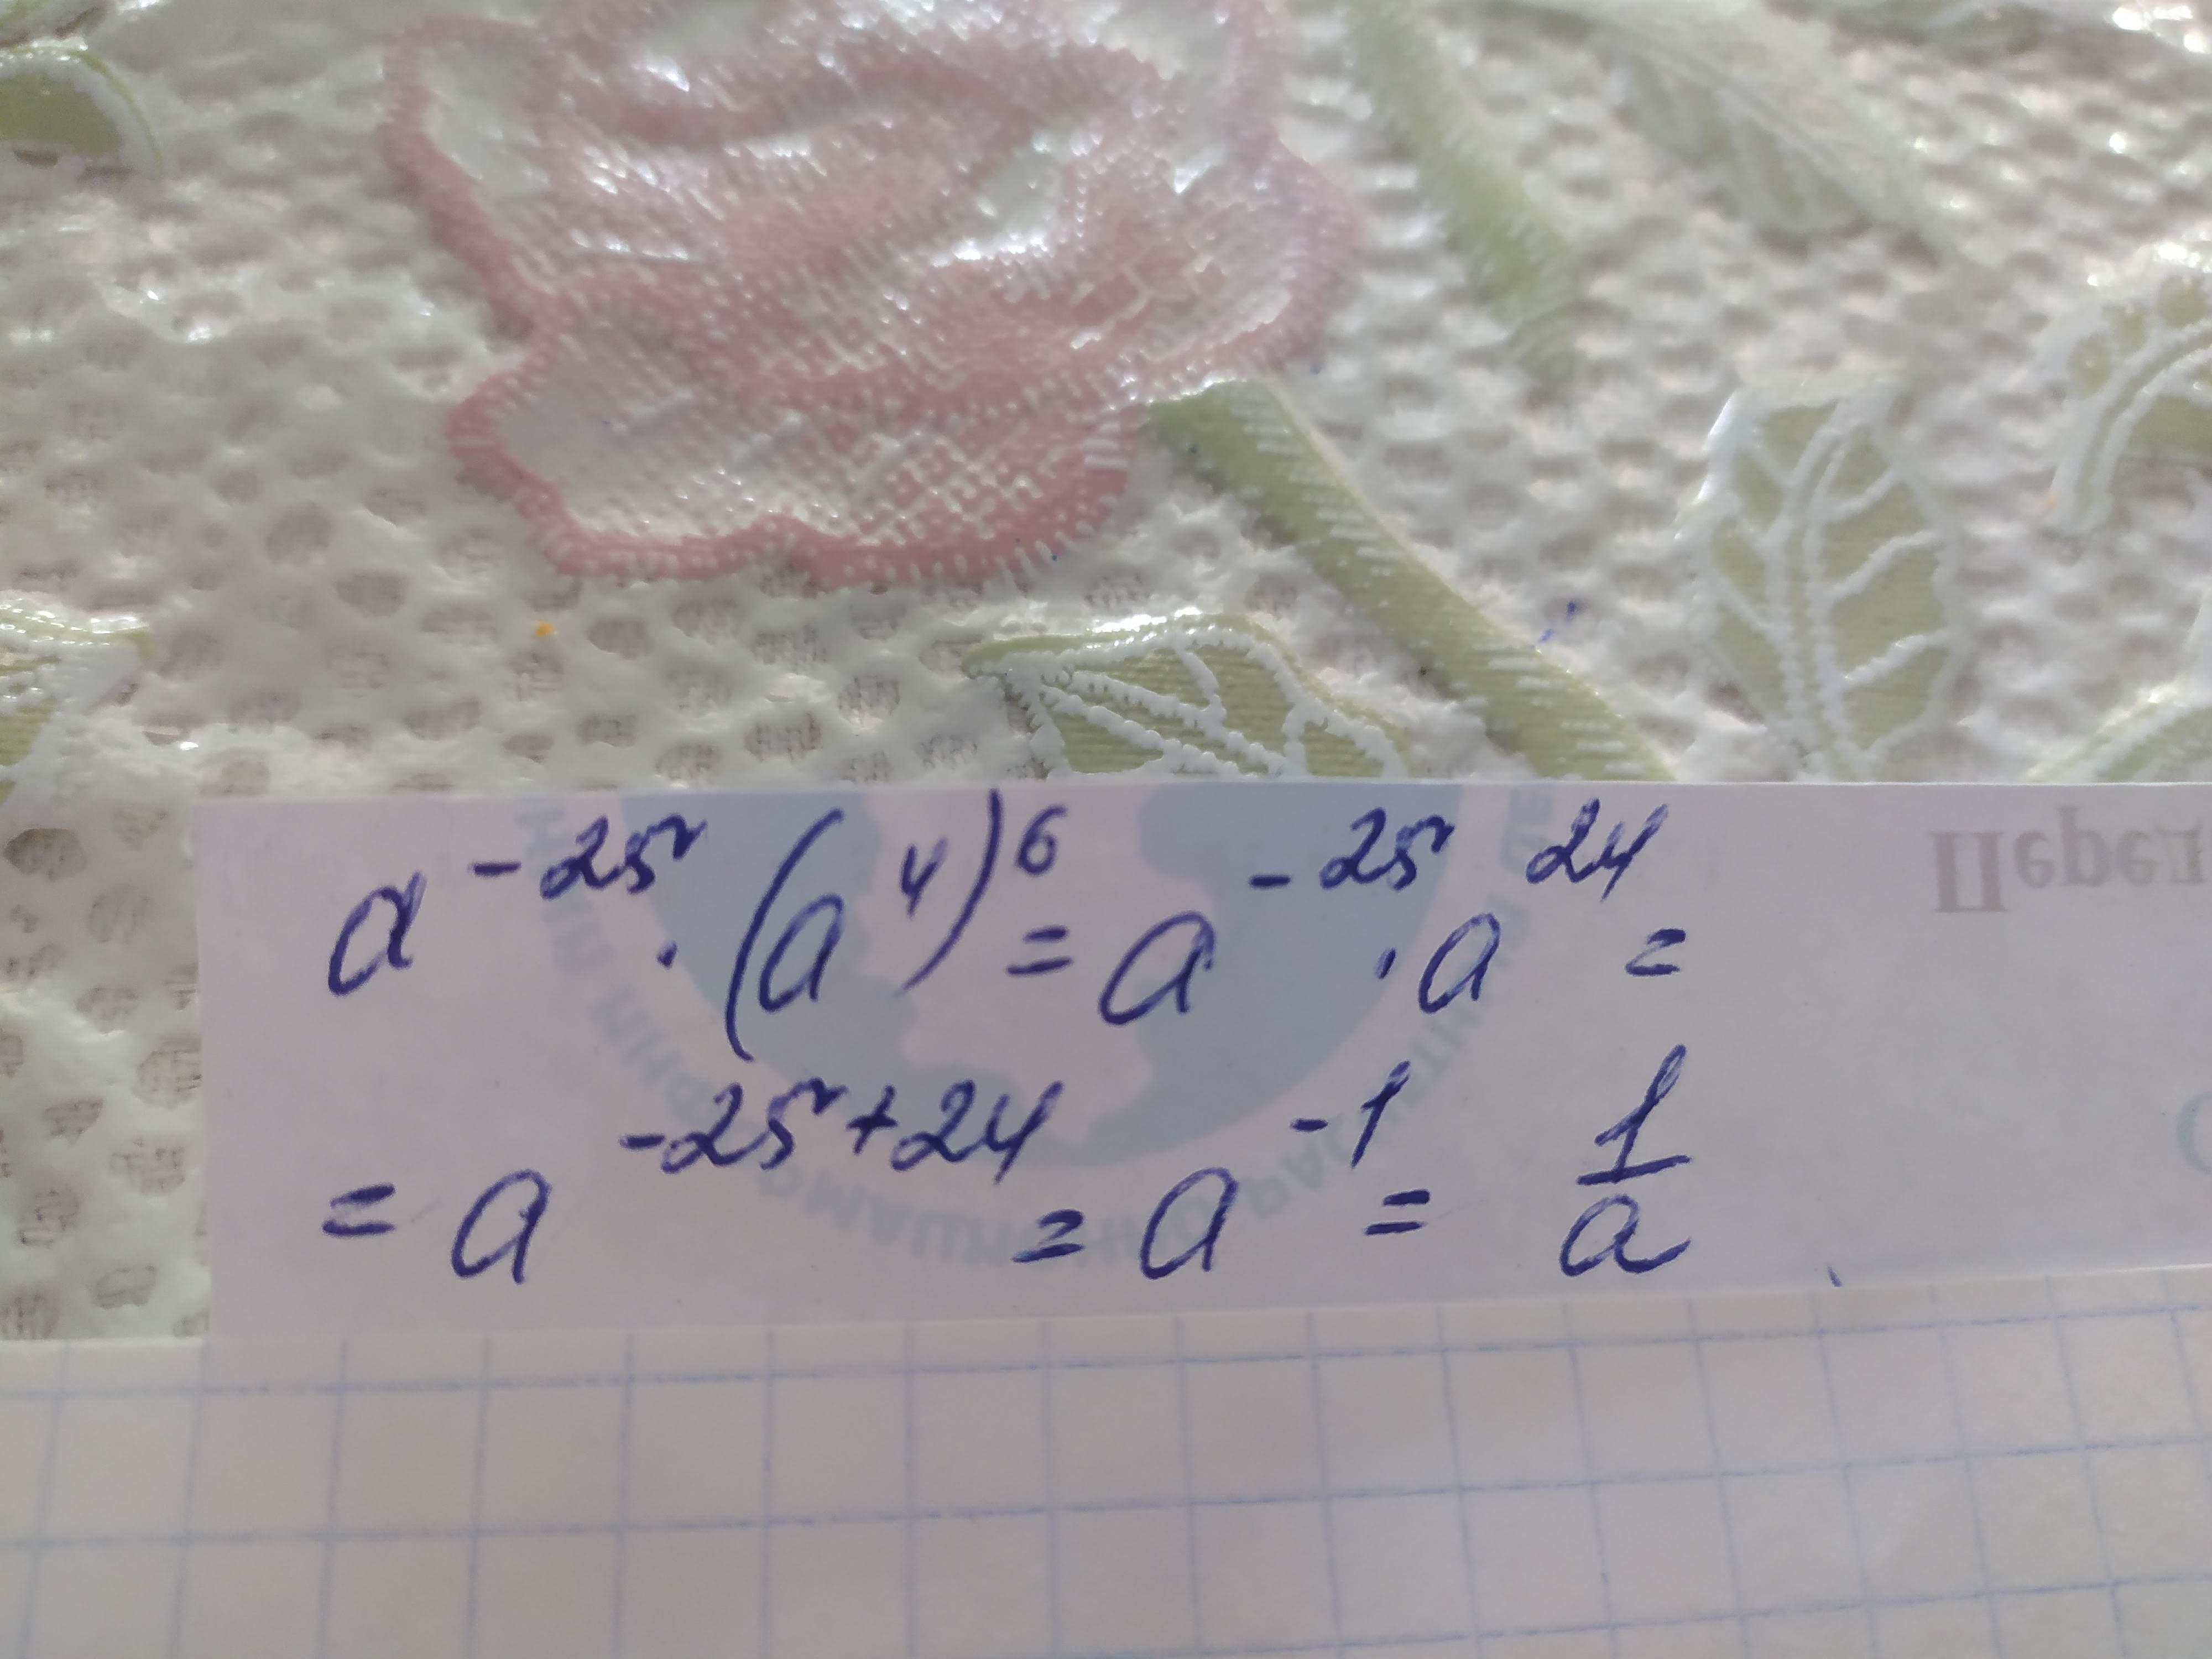 a^{-25} · (a^4)^6 = a^{-25} · a^{24} =
= a^{-25+24} = a^{-1} = \frac{1}{a}